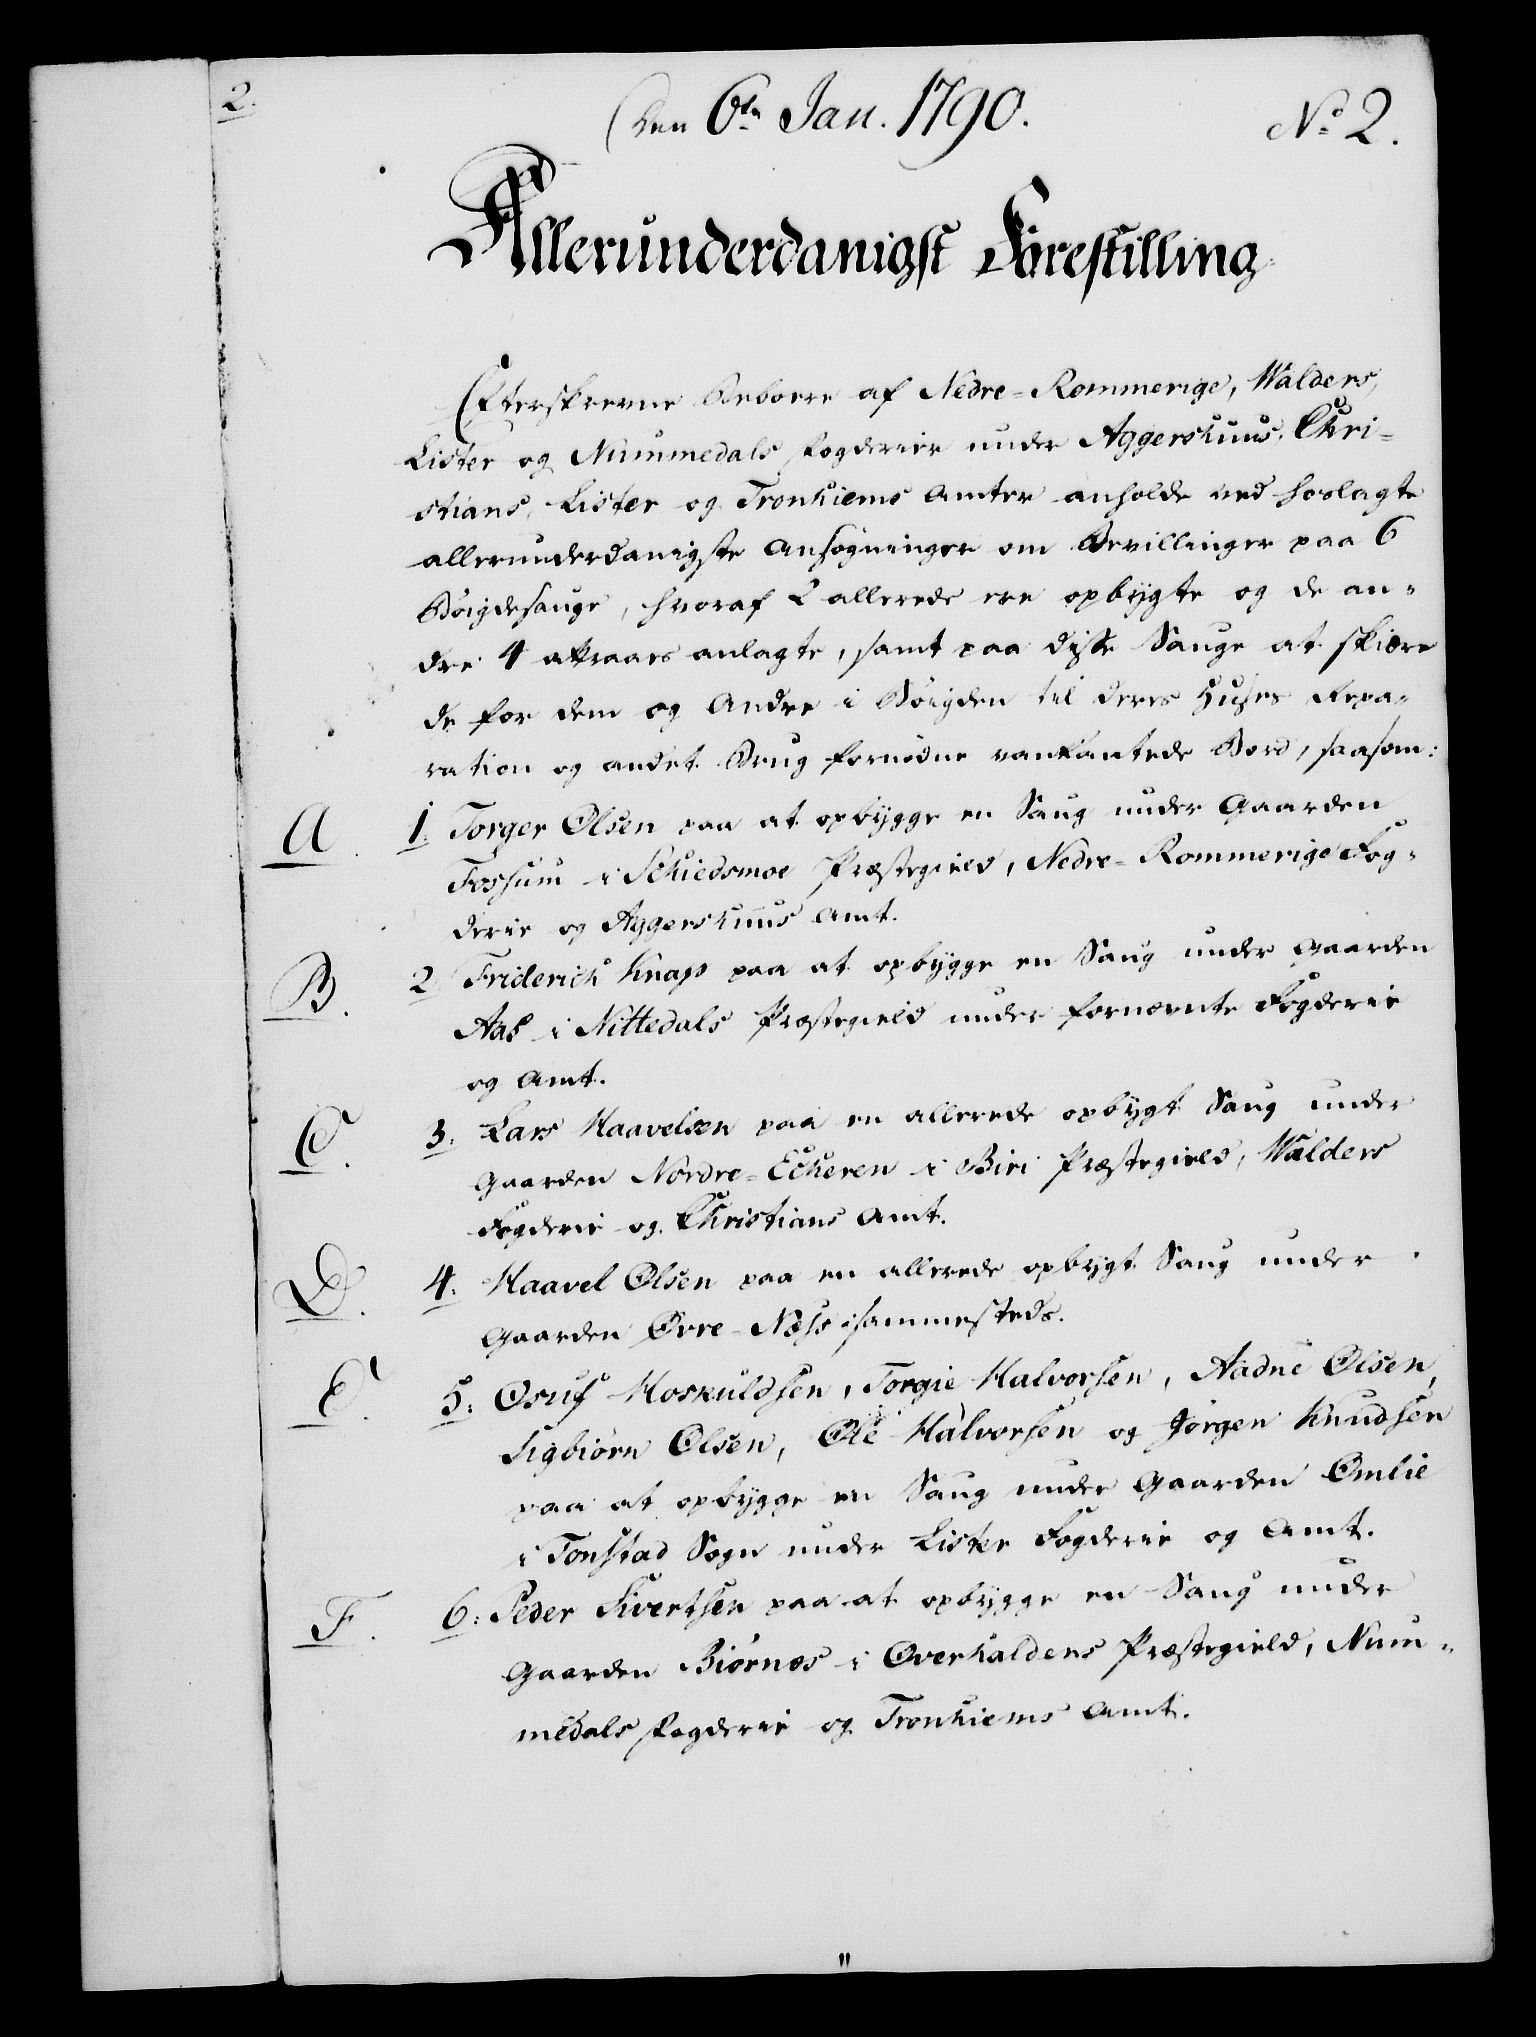 2.
Den 6te Jan. 1790.
No 2.
Allerunderdanigst Forestilling
Efterskrevne Beboere af Nedre-Rommerige, Walders,
Lister og Nummedals Fogderier under Aggershuus, Chri-
stians, Lister og Tronhiems Amter anholde ved hoslagte
allerunderdanigste Ansøgninger om Bevillinger paa 6
Bøigdesauge, hvoraf 2 allerede ere opbygte og de an-
dre 4 attraaes anlagte, samt paa disse Sauge at skiære
de for dem og Andre i Bøigden til deres Huses Repa-
ration og andet Brug fornødne vankantede Bord, saasom:
A. 1. Torger Olsen paa at opbygge en Saug under Gaarden
Fossum i Schiedsmoe Præstegield, Nedre-Rommerige Fog-
derie og Aggershuus Amt.
B. 2 Friderich Knap paa at opbygge en Saug under Gaarden
Aas i Nittedals Præstegield under fornævnte Fogderie
og Amt.
C. 3. Lars Haavelsen paa en allerede opbygt Saug under
Gaarden Nordre-Eckeren i Biri Præstegield, Walders
Fogderie og Christians Amt.
D. 4. Haavel Olsen paa en allerede opbygt Saug under
Gaarden Øvre-Næss isammesteds.
E. 5. Osuf Hoskuldsen, Torgie Halvorsen, Aadne Olsen,
Sigbiørn Olsen, Ole Halvorsen og Jørgen Knudsen
paa at opbygge en Saug under Gaarden Omlie
i Tonstad Sogn under Lister Fogderie og Amt.
F. 6. Peder Sivertsen paa at opbygge en Saug under
Gaarden Biørnes i Overhaldens Præstegield, Num-
medals Fogderie og Tronhiems Amt.